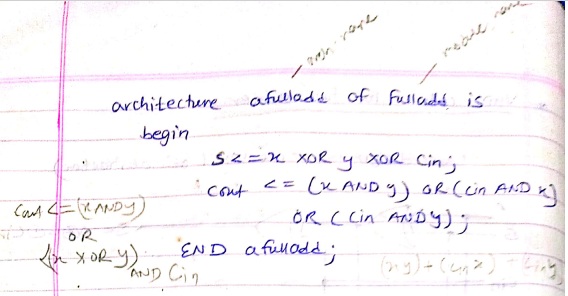 arch. name
module name
architecture afulladd of fulladd is
begin
S <= x XOR y XOR Cin;
Cout <= (x AND y) OR (Cin AND x)
OR (Cin AND y);
END afulladd;
Cout <= (x AND y)
OR
(x XOR y)
AND Cin
(xy) + (Cinx) + Ciny